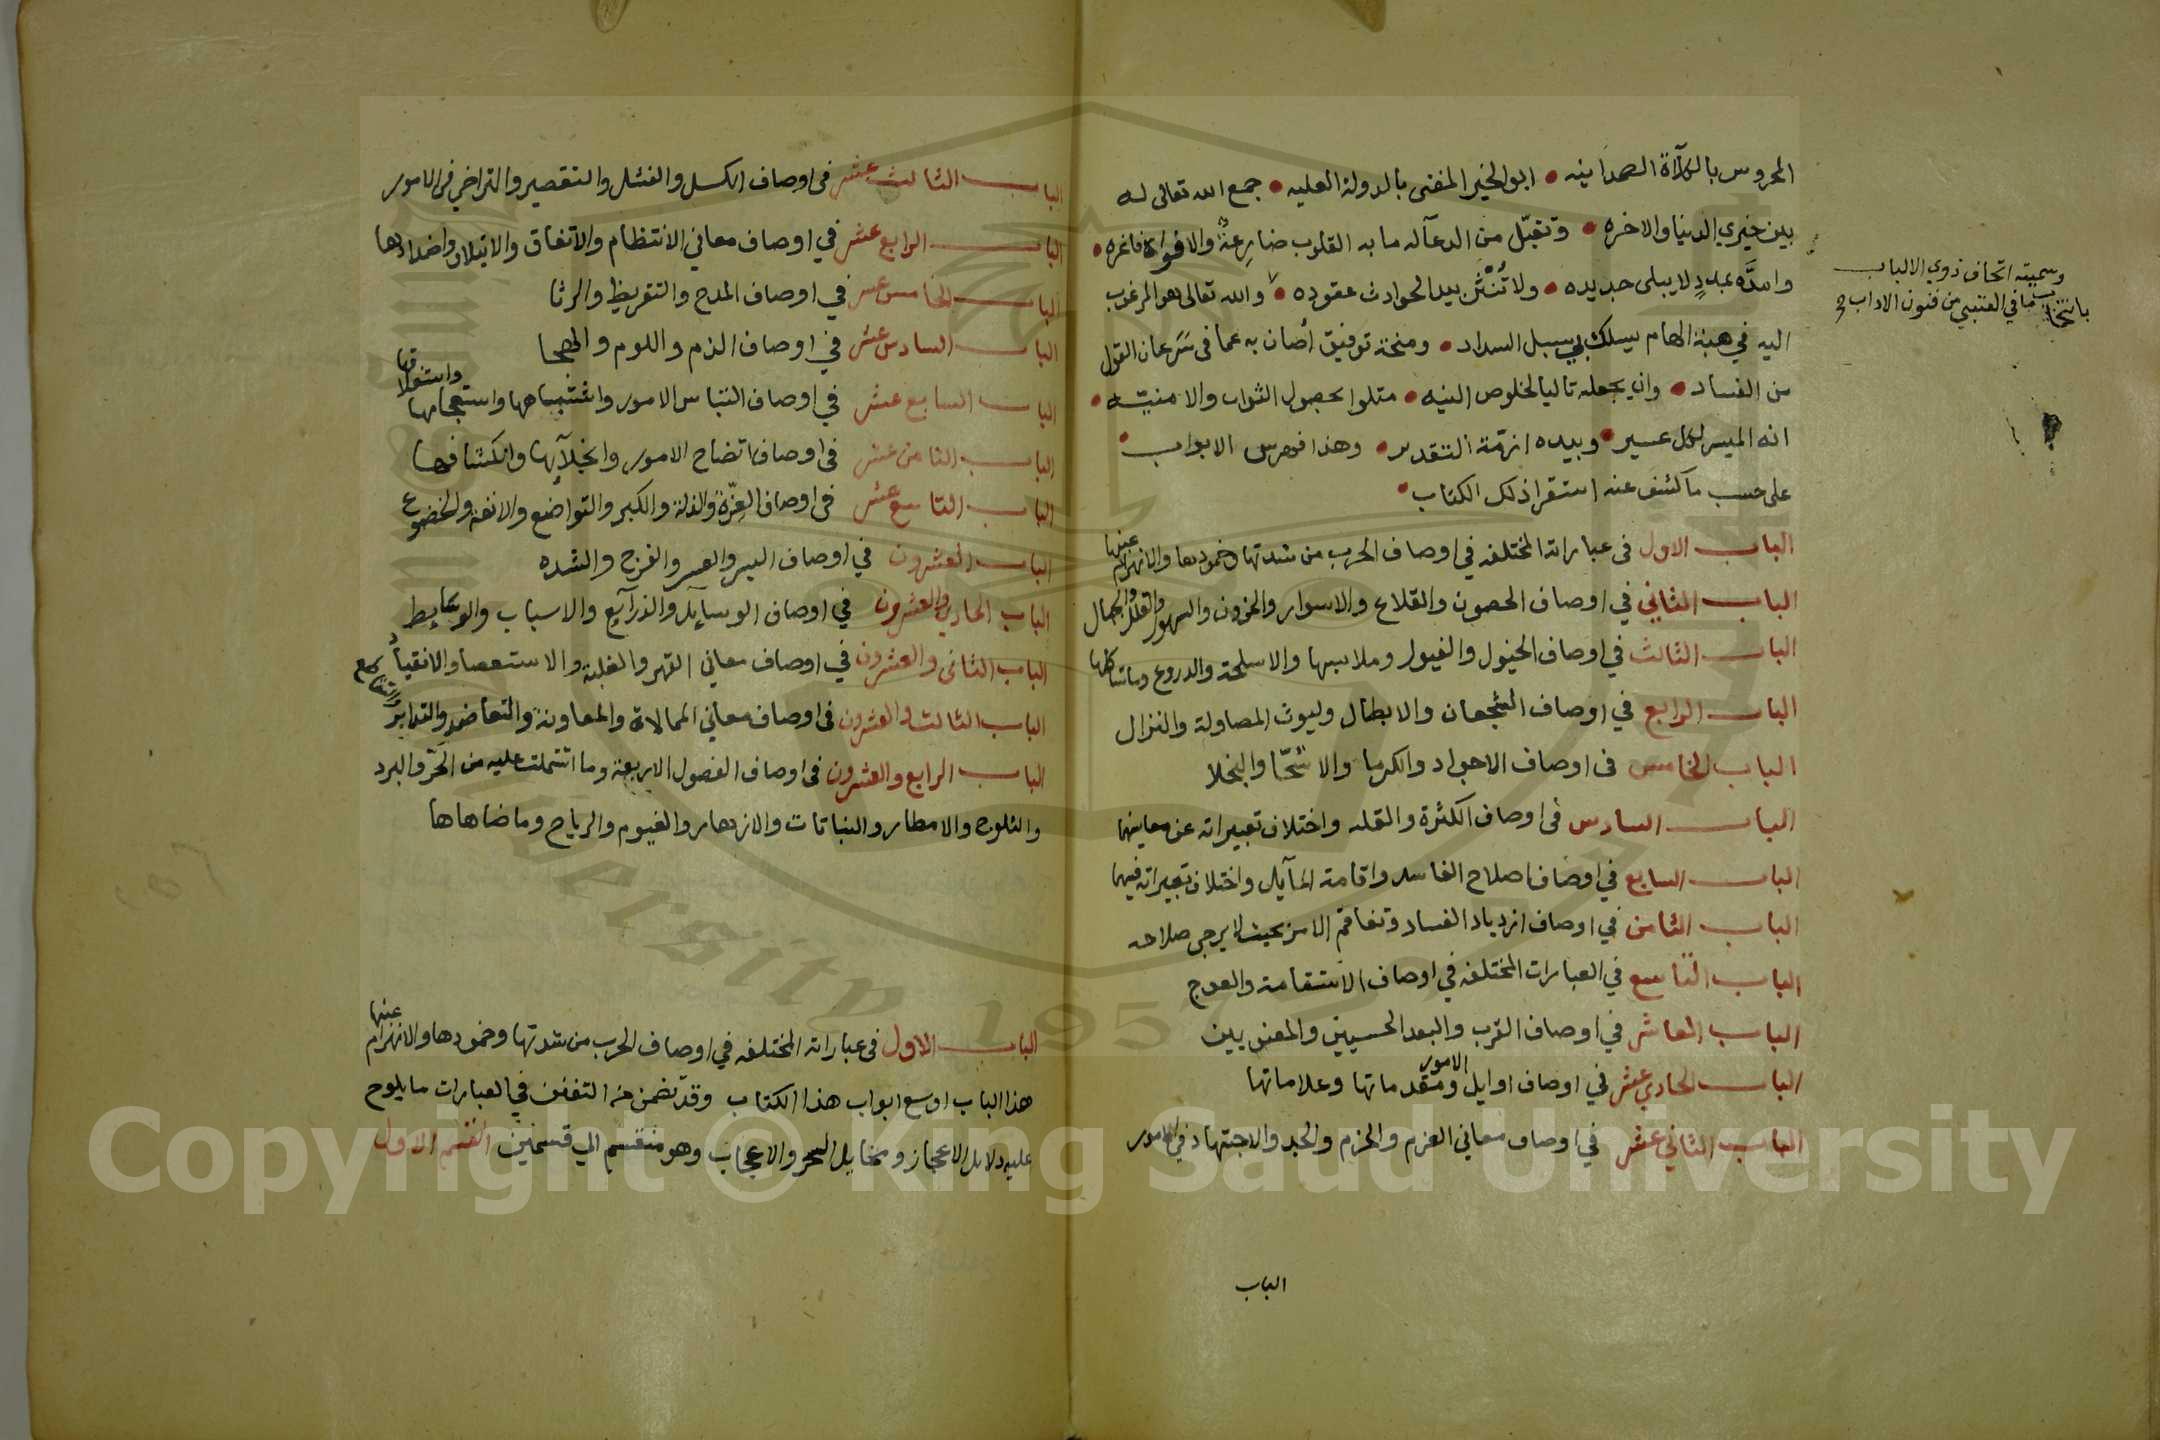 المحروس بالكلآاة الصمدانيه • ابو الخير المفتى بالدولة العليه • جمع الله تعالى له
بين خيري الدنيا والاخره • وتقبّل من الدعآ له ما به القلوب ضارعةٌ والافواه فاغره •
وامدَّه بمددٍ لا يبلى جديده • ولا تُنْثَر بيد الحوادث عقوده • والله تعالى هو المرغوب
اليه في هبة الهام يسلك بي سبل السداد • ومنحة توفيق أصان به عما فى سَرَعان القول
من الفساد • وان يجعله تاليا لخلوص النيه • متلوا بحصول الثواب والامنيّه •
انه الميسر لكل عسير • وبيده ازمّة التقدير • وهذا فهرس الابواب •
على حسب ما كشف عنه استقراذلك الكتاب •
الباب الاول فى عباراته المختلفه في اوصاف الحرب من شدتها وخمودها والانهزام عنها
الباب الثاني في اوصاف الحصون والقلاع والاسوار والحزون والسهول والقلل والجبال
الباب الثالث في اوصاف الخيول والفيول وملابسها والاسلحة والدروع وما شاكلها
الباب الرابع في اوصاف الشجعان والابطال وليوث المصاولة والنزال
الباب الخامس فى اوصاف الاجواد والكرما والاشحّا والبخلا
الباب السادس فى اوصاف الكثرة والقله واختلاف تعبيراته عن معانيهما
الباب السابع في اوصاف اصلاح الفاسد واقامة المآيل واختلاف تعبيراته فيهما
الباب الثامن في اوصاف ازدياد الفساد وتفاقم الامر بحيث لا يرجى صلاحه
الباب التاسع في العبارات المختلفه في اوصاف الاستقامة والعوج
الباب العاشر في اوصاف القرب والبعد الحسيين والمعنويين
الباب الحادي عشر في اوصاف اوايل الامور ومقدماتها وعلاماتها
الباب الثاني عشر في اوصاف معاني العزم والحزم والجد والاجتهاد في الامور
الباب
وسميته اتحاف ذوي الالباب
بانتخاب ما في العتبي من فنون الاداب
الباب الثالث عشر فى اوصاف الكسل والفشل والتقصير والتراخي في الامور
الباب الرابع عشر في اوصاف معاني الانتظام والاتفاق والايتلاف واضدادها
الباب الخامس عشر في اوصاف المدح والتقريظ والرثا
الباب السادس عشر في اوصاف الذم واللوم والهجا
الباب السابع عشر في اوصاف التباس الامور واشتباهها واستعجامها واستغلاقها
الباب الثامن عشر فى اوصاف اتضاح الامور وانجلآيها وانكشافها
الباب التاسع عشر فى اوصاف العزّة والذلة والكبر والتواضع والانفة والخضوع
الباب العشرون في اوصاف اليسر والعسر والفرج والشده
الباب الحادي والعشرون في اوصاف الوسايل والذرآيع والاسباب والوسايط
الباب الثانى والعشرون في اوصاف معاني القهر والغلبة والاستعصا والانقياد
الباب الثالث والعشرون فى اوصاف معاني الممالاة والمعاونة والتعاضد والتدابر والتقاطع
الباب الرابع والعشرون فى اوصاف الفصول الاربعة وما اشتملت عليه من الحَرّ والبرد
والثلوج والامطار والنباتات والازهار والغيوم والرياح وما ضاهاها
الباب الاول فى عباراته المختلفه في اوصاف الحرب من شدتها وخمودها والانهزام عنها
هذا الباب اوسع ابواب هذا الكتاب وقد تضمن من التفنن في العبارات ما يلوح
عليه دلايل الاعجاز ومخايل السحر والاعجاب وهو منقسم الي قسمين القسم الاول
Copyright © King Saud University
University 1957